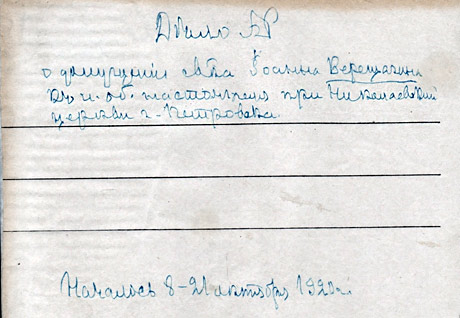 Дѣло №
о допущении свящ. Іоанна Верещагина
къ и. об. настоятеля при Николаевской
церкви г. Петровска.
Началось 8–21 октября 1920 г.